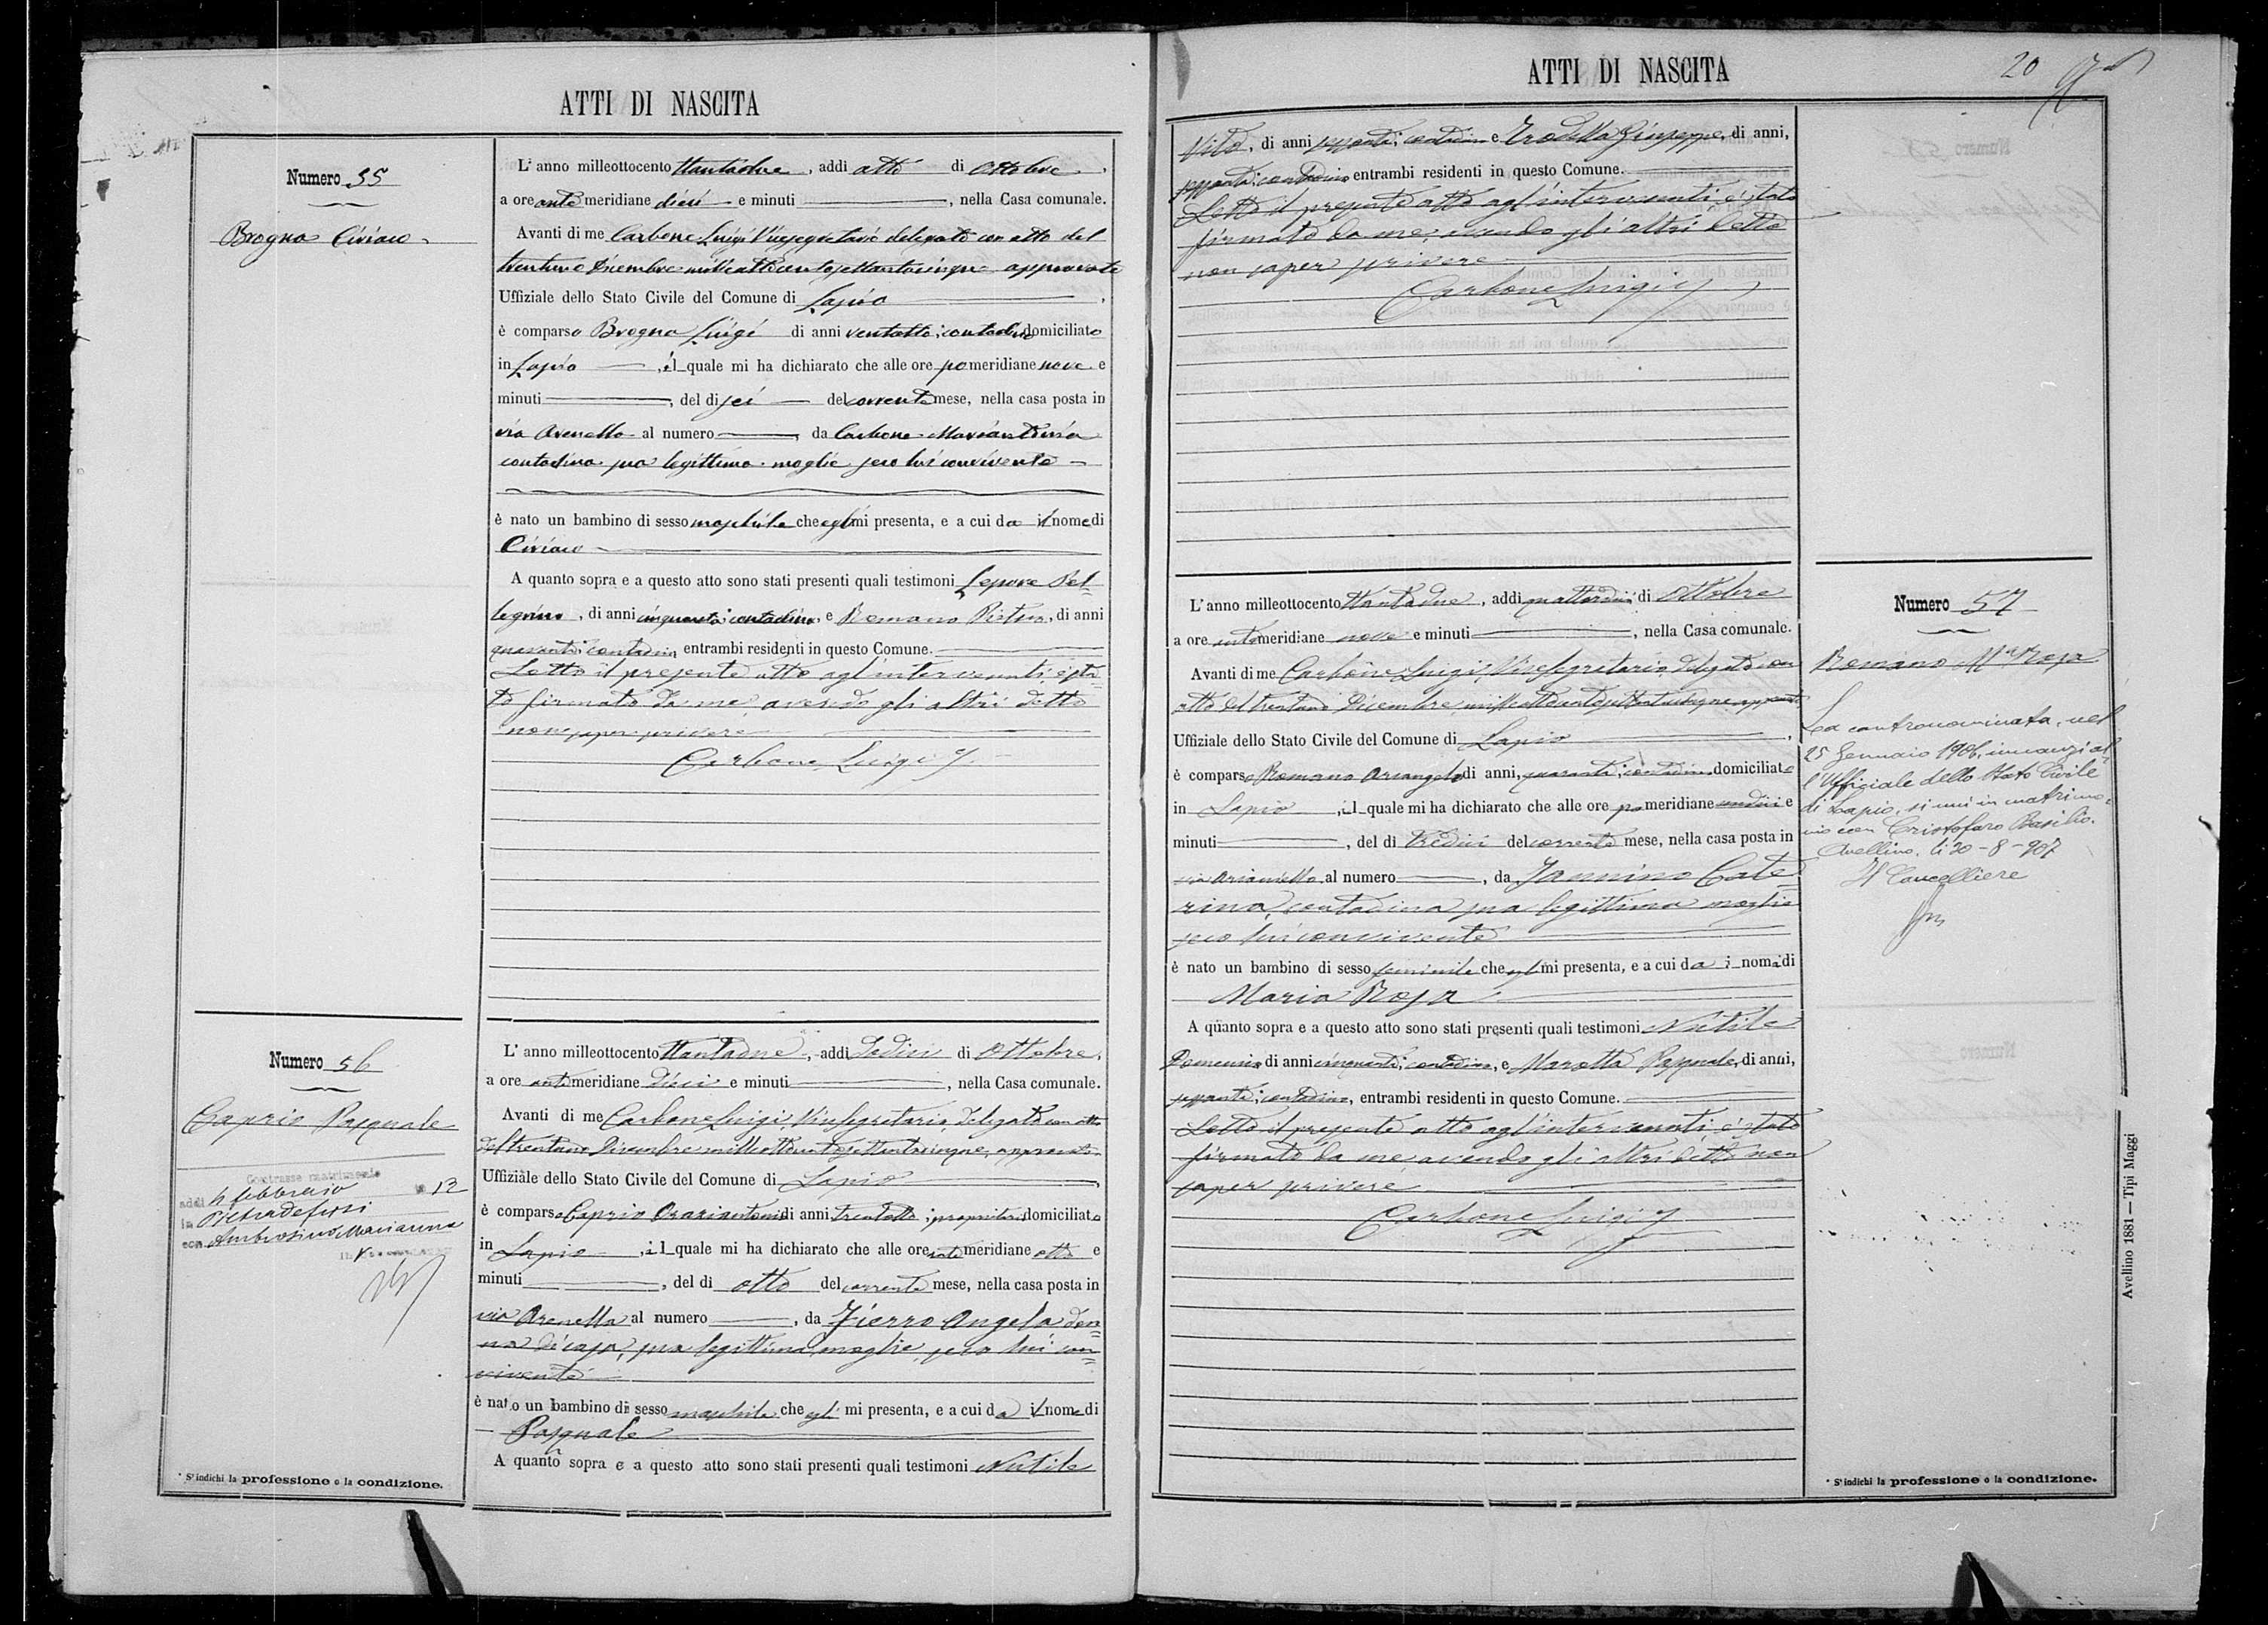 ATTI DI NASCITA
Numero 55
Brogna Ciriaco
L'anno milleottocento ottantadue, addi otto di Ottobre,
a ore ante meridiane dieci e minuti, nella Casa comunale.
Avanti di me Carbone Luigi Vicesegretario delegato con atto del
trentuno Dicembre milleottocentosettantacinque approvato
Uffiziale dello Stato Civile del Comune di Lapio,
è comparso Brogna Luigi di anni ventotto; contadino domiciliato
in Lapio, il quale mi ha dichiarato che alle ore pomeridiane nove e
minuti, del dì sei del corrente mese, nella casa posta in
via Arenella al numero, da Carbone Mariantonia
contadina sua legittima moglie seco lui convivente
è nato un bambino di sesso maschile che egli mi presenta, e a cui da il nome di
Ciriaco
A quanto sopra e a questo atto sono stati presenti quali testimoni Lepore Pel=
legrino, di anni cinquanta; contadino, e Romano Pietro, di anni
quaranta; contadino, entrambi residenti in questo Comune.
Letto il presente atto agl'intervenuti, è sta=
to firmato da me, avendo gli altri detto
non saper scrivere
Carbone Luigi
Numero 56
Caprio Pasquale
Contrasse matrimonio
addi 4 febbraio 12
in Pietradefusi
con Ambrosino Marianna
L'anno milleottocento ottantadue, addi dodici di Ottobre,
a ore antimeridiane dieci e minuti, nella Casa comunale.
Avanti di me Carbone Luigi, Vicesegretario, delegato con atto
del trentuno Dicembre milleottocentosettantacinque, approvato
Uffiziale dello Stato Civile del Comune di Lapio,
è comparso Caprio Oraziantonio di anni trentotto; proprietario domiciliato
in Lapio, il quale mi ha dichiarato che alle ore antimeridiane otto e
minuti, del dì otto del corrente mese, nella casa posta in
via Arenella al numero, da Fierro Angela don=
na di casa, sua legittima moglie, seco lui con=
vivente
è nato un bambino di sesso maschile che egli mi presenta, e a cui da il nome di
Pasquale
A quanto sopra e a questo atto sono stati presenti quali testimoni Nutile
* S'indichi la professione o la condizione.
ATTI DI NASCITA
20
Vito, di anni sessanta; contadino e Trodella Giuseppe, di anni,
sessanta; contadino entrambi residenti in questo Comune.
Letto il presente atto agl'intervenuti, è stato
firmato da me, avendo gli altri detto
non saper scrivere
Carbone Luigi
L'anno milleottocento ottantadue, addi quattordici di Ottobre
a ore antimeridiane nove e minuti, nella Casa comunale.
Avanti di me Carbone Luigi, Vicesegretario, delegato con
atto del trentuno Dicembre milleottocentosettantacinque approvato
Uffiziale dello Stato Civile del Comune di Lapio,
è comparso Romano Arcangelo di anni, quaranta; contadino domiciliato
in Lapio, il quale mi ha dichiarato che alle ore pomeridiane undici e
minuti, del dì tredici del corrente mese, nella casa posta in
via Arianiello al numero, da Jannino Cate=
rina, contadina sua legittima moglie
seco lui convivente
è nato un bambino di sesso femminile che egli mi presenta, e a cui da i nome di
Maria Rosa
A quanto sopra e a questo atto sono stati presenti quali testimoni Nutile
Domenico di anni cinquanta; contadino, e Marotta Pasquale, di anni,
sessanta; contadino, entrambi residenti in questo Comune.
Letto il presente atto agl'intervenuti, è stato
firmato da me, avendo gli altri detto non
saper scrivere
Carbone Luigi
Numero 57
Romano Ma Rosa
La contronominata, nel
25 Gennaio 1906, innanzi al=
l'Ufficiale dello Stato Civile
di Lapio, si unì in matrimo=
nio con Cristofaro Basilio.
Avellino, li 20-8-907
Il Cancelliere
* S'indichi la professione o la condizione.
Avellino 1881 — Tipi Maggi